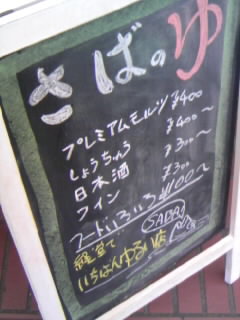 さばのゆ
プレミアムモルツ ¥400
しょうちゅう ¥400〜
日本酒 ¥300〜
ワイン ¥300〜
フードいろいろ ¥100〜
経堂で
いちばんゆるい店